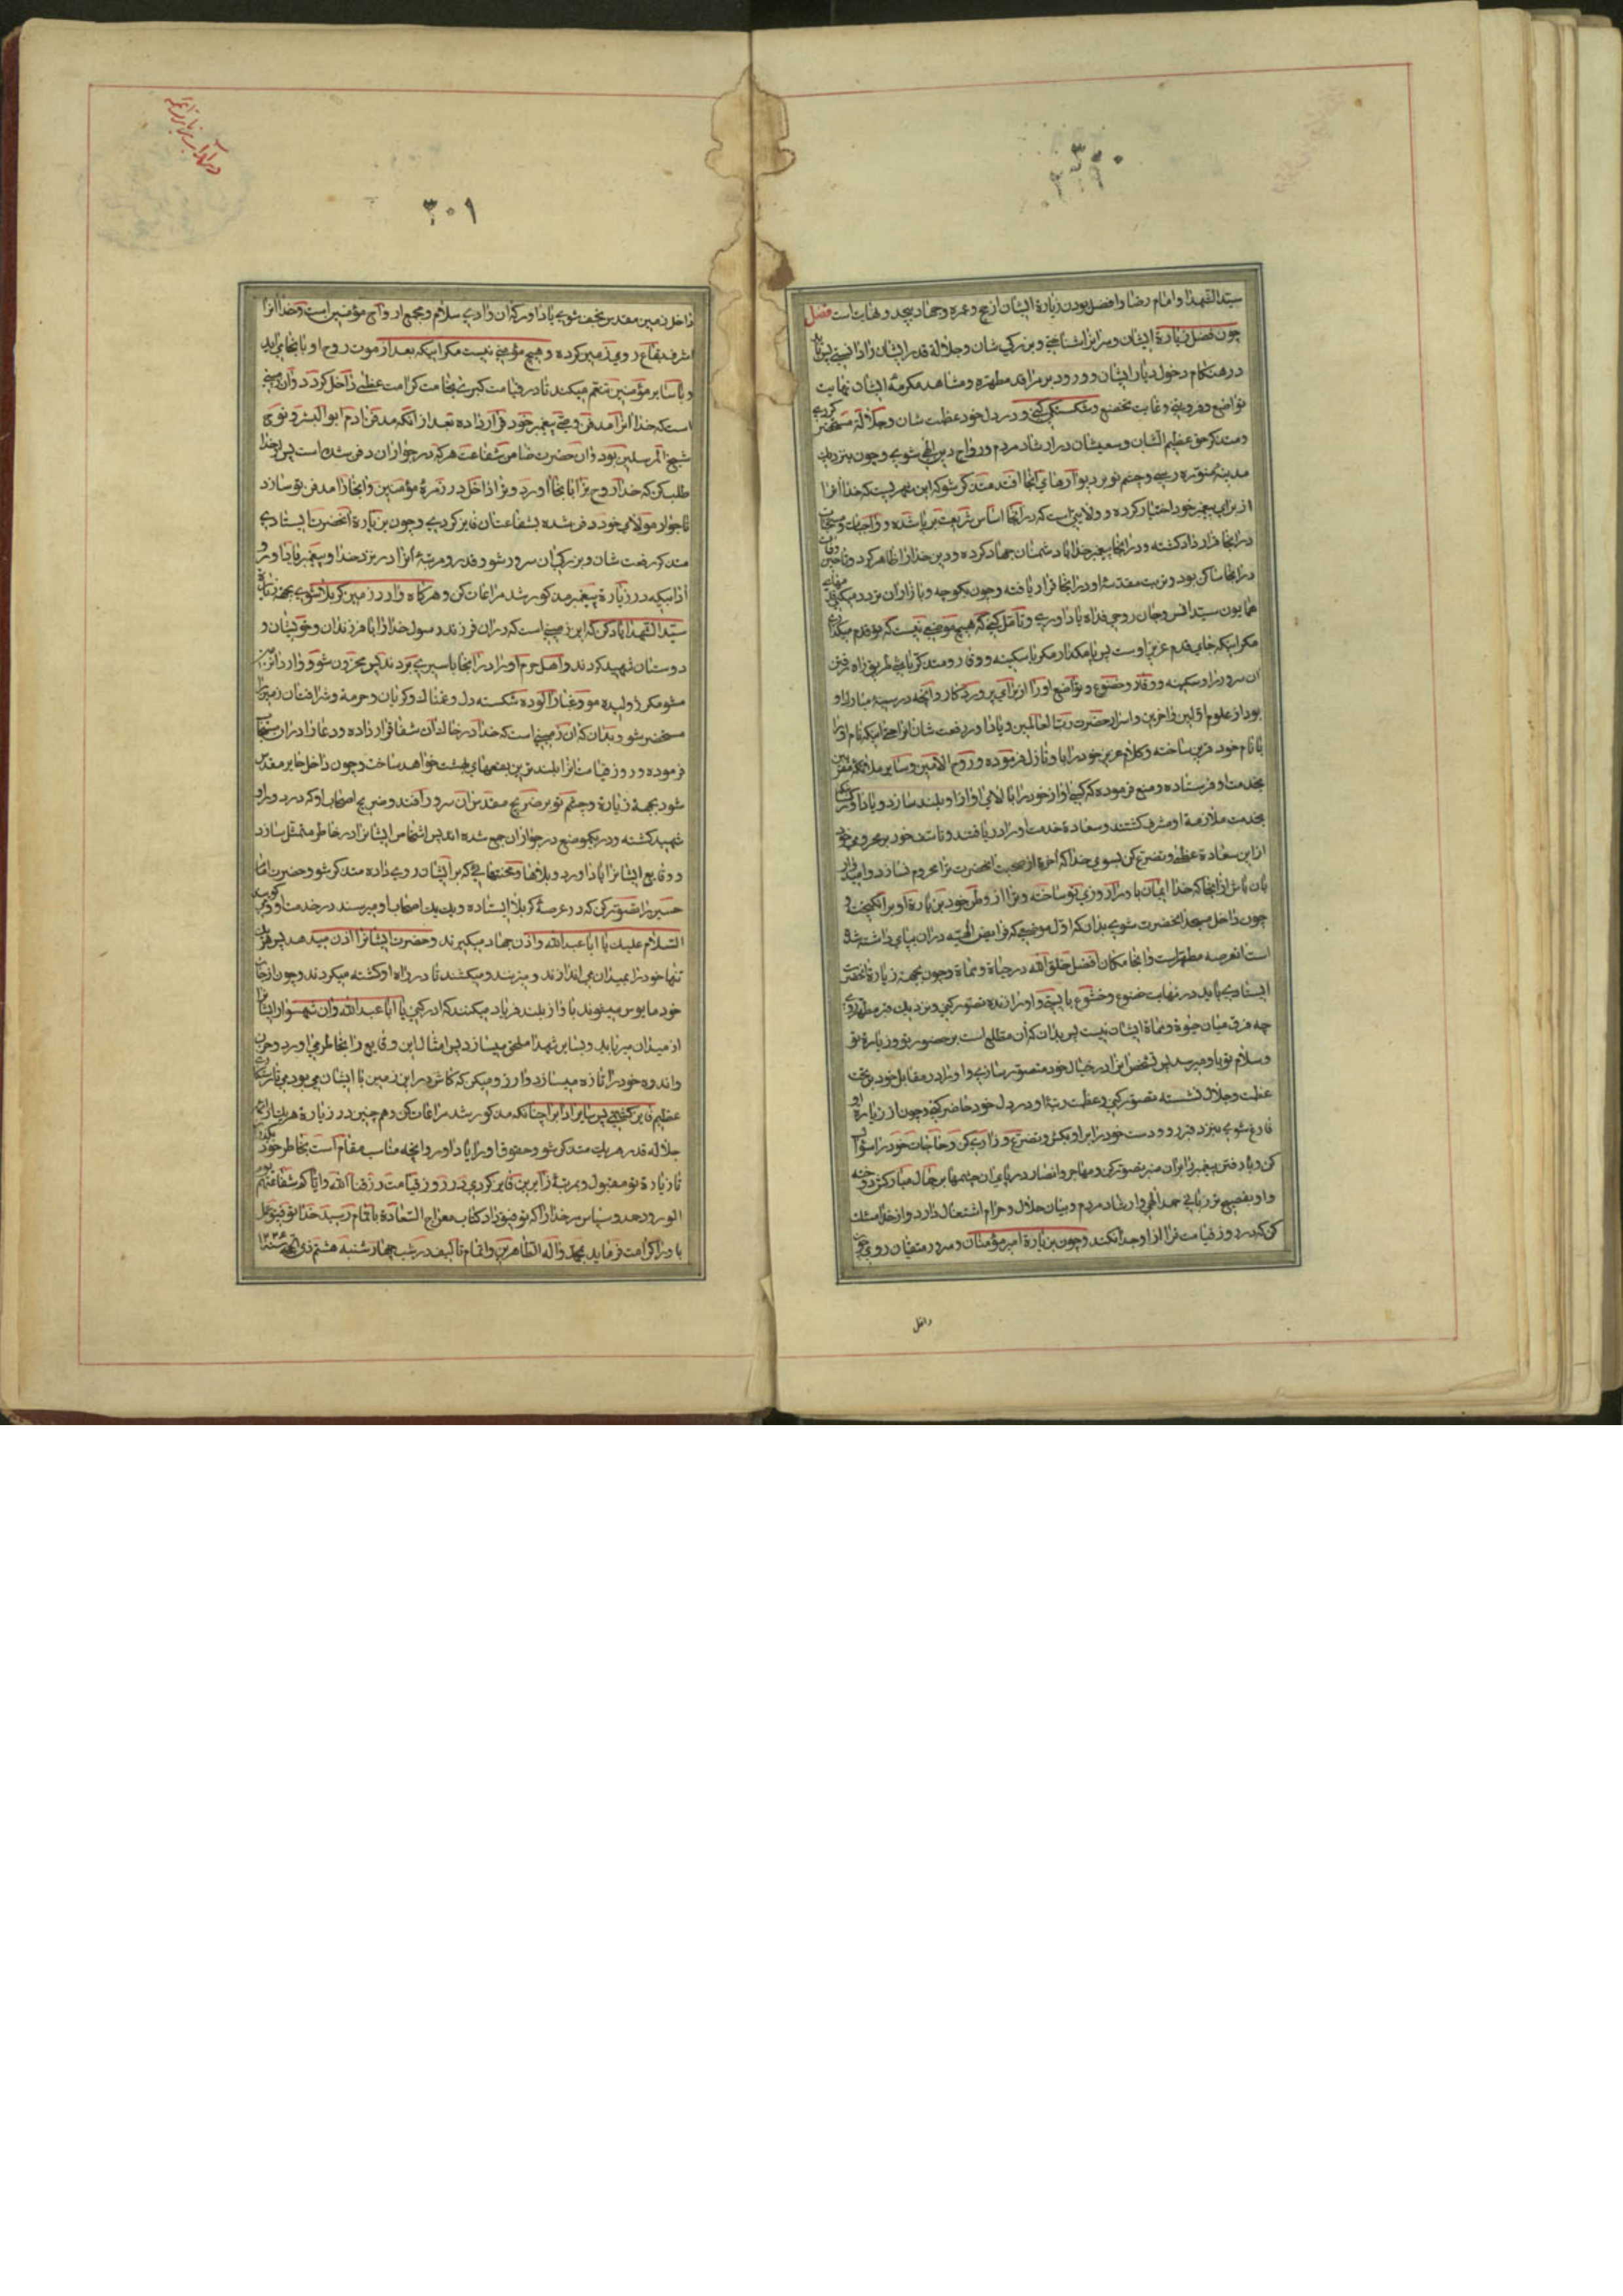 سیّد الشهدا و امام رضا و افضل بودن زیارة ایشان از حج و عمره و جهاد بیحد و نهایت است فصل
چون فضل زیارة ایشان و سرایر را شناختی و بزرکی شان و جلالة قدر ایشان را دانستی پس باید
در هنکام دخول دیار ایشان و ورود بر مراقد مطهره و مشاهد مکرمهٔ ایشان نهایت
تواضع و فروتنی و غایت تخضع و شکستکی کنی و در دل خود عظمت شان و جلالة مستحضر کردی
و متذکر حق عظیم الشان و سعیشان در ارشاد مردم و رواج دین الهی شوی و چون بنزدیک
مدینهٔ منوّره رسی و چشم تو بر دیوارهای آنجا افتد متذکر شو که این شهریست که خدا آنرا
از برای پیغمبر خود اختیار کرده و ولایتی است که در آنجا اساس شریعت بر پا شده و واجبات و مستحبات
در آنجا قرار داد کشته و در آنجا پیغمبر خدا با دشمنان جهاد کرده و دین خدا را ظاهر کرد و تا حین وفات
در آنجا ساکن بود و تربت مقدسهٔ او در آنجا قرار یافته و چون بکوچه و بازار آن تردد میکنی
همایون سید انس و جان روحی فداه یاد آوری و تأمل کنی که هیچ موضعی نیست که تو قدم میکذاری
مکر اینکه جای قدم عزیز اوست پس پا مکذار مکر با سکینه و وقار و متذکر باش طریق راه رفتن
آن سرور را و سکینه و وقار و خضوع و تواضع او را از برای پروردکار و آنچه در سینهٔ مبارک او
بود از علوم اوّلین و آخرین و اسرار حضرت رب العالمین و یاد آور رفعت شان آنرا حتی اینکه نام او را
با نام خود قرین ساخته و کلام عزیز خود را باو نازل فرموده و روح الامین و سایر ملائکهٔ مقرّبین
بخدمت او فرستاده و منع فرموده که کسی آواز خود را بالای آواز او بلند سازد و یاد آور
بخدمت ملازمة او مشرف کشتند و سعادة خدمت او را دریافتند و تاسف خود بر محرومی خود
از این سعادة عظمی و تضرع کن بسوی خدا که آخرة از صحبت آنحضرت ترا محروم نسازد و امیدوار
بان باش از آنجا که خدا ایمان باو را روزی تو ساخته و ترا از وطن خود بزیارة او برانکیخت و
چون داخل مسجد آنحضرت شوی بدان که اوّل موضعی که فرایض الهیّه در آن بپای داشته شد
است آنعرصه مطهر است و آنجا مکان افضل خلق الله در حیاة و مماة و چون بجهت زیارة آنحضرت
ایستادی باید در نهایت خضوع و خشوع بایستی و او را زنده تصور کنی و نزدیک قبر مطهر روی
چه فرق میان حیوة و مماة ایشان نیست پس بدان که آن مطلع است بر حضور تو و زیارة تو
و سلام تو باو میرسد پس شخص آنرا در خیال خود متصور سازی و او را در مقابل خود بر تخت
عظمت و جلال نشسته تصوّر کنی و عظمت رتبهٔ او در دل خود حاضر کنی و چون از زیارة او
فارغ شوی بنزد قبر رو و دست خود را بر او بکش و تضرّع و زاری کن و حاجات خود را سؤال
کن و یاد رفتن پیغمبر را بر آن منبر تصور کن و مهاجر و انصار در پای آن چشمها بر جمال مبارکش دوخته
و او بفصیح تر زبانی حمد الهی و ارشاد مردم و بیان حلال و حرام اشتغال دارد و از خدا مسئلت
کن که در روز قیامت ترا از او جدا نکند و چون بزیارة امیر مؤمنان و سرور متقیان روی
داخل
در آداب زیارت ائمه
۳۰۱
داخل زمین مقدس نجف شوی یاد آور که آن وادی سلام و مجمع ارواح مؤمنین است و خدا آنرا
اشرف بقاع روی زمین کرده و هیچ مؤمنی نیست مکر اینکه بعد از موت روح او بانجا می آید
و با سایر مؤمنین متنعم میکند تا در قیامت کبری بخامت کرامت عظمی داخل کردد و آن زمینی
است که خدا آنرا مدفن وصی پیغمبر خود قرار داده بعد از آنکه مدفن آدم ابو البشر و نوح
شیخ المرسلین بود و آن حضرت ضامن شفاعت هر که در جوار آن دفن شده است پس از خدا
طلب کن که خدا روح ترا بآنجا آورد و ترا داخل در زمرهٔ مؤمنین و آنجا را مدفن تو سازد
تا جوار مولای خود دفن شده بشفاعتان فایز کردی و چون بزیارة آنحضرت ایستادی
متذکر رفعت شان و بزرکی آن سرور شو و قدر و مرتبهٔ آنرا در نزد خدا و پیغمبر یاد آور و
آدابیکه در زیارة پیغمبر مذکور شد مراعات کن و هرکاه وارد زمین کربلا شوی بجهة زیارة
سیّد الشهدا یاد کن که این زمینی است که در آن فرزند رسول خدا را با فرزندان و خویشان و
دوستان شهید کردند و اهل حرم او را در آنجا باسیری بردند پس محزون شو و وارد آن
مشو مکر ژولیده مو و غبار آلوده شکسته دل و غمناک و کریان و حرمة و شرافت آن زمین را
مستحضر شو و بدان که آن زمینی است که خدا در خاک آن شفا قرار داده و دعا را در آن مستجاب
فرموده و روز قیامت آنرا بلند ترین بقعهای بهشت خواهد ساخت و چون داخل حایر مقدس
شود بجهة زیارة و چشم تو بر ضریح مقدس آن سرور افتد و ضریح اصحاب او که در دور او
شهید کشته و در یکموضع در جوار آن جمع شده اند پس اشخاص ایشانرا در خاطر متمثل سازد
و وقایع ایشانرا یاد آورد و بلاها و محنتهائی که بر ایشان روی داده متذکر شو و حضرت امام
حسین را تصوّر کن که در عرصهٔ کربلا ایستاده و یک یک اصحاب او میرسند در خدمت او و میکویند
السّلام علیک یا ابا عبدالله و اذن جهاد میکیرند و حضرت ایشانرا اذن میدهد پس هر یک
تنها خود را بمیدان می اندازند و میزنند و میکشند تا در راه او کشته میکردند و چون از حیات
خود مایوس میشوند باواز بلند فریاد میکنند که ادرکنی یا ابا عبدالله و آن شهسوار ایشانرا
از میدان میرباید و بسایر شهدا ملحق میسازد پس امثال این وقایع را بخاطر می آورد و حزن
و اندوه خود را تازه میسازد و آرزو میکن که کاش در این زمین با ایشان می بودی
عظیم فایز کشتی پس سایر آداب را چنانکه مذکور شد مراعات کن و هم چنین در زیارة هر یک از ائمه
جلالة قدر هر یک متذکر شو و حقوق او را یاد آور و آنچه مناسب مقام است بخاطر خود بکذران
تا زیارة تو مقبول و بمرتبهٔ زایرین فایز کردی در روز قیامت رزقنا الله و ایّاکم شفاعتهم یوم
الورود حمد و سپاس مر خدا را که توفیق داد کتاب معراج السّعادة باتمام رسید خدا توفیق عمل
باو را کرامت فرماید بمحمّد و آله الطاهرین و اتمام تالیف در شب چهارشنبه هشتم ذی الحجه سنه ۱۲۳۶